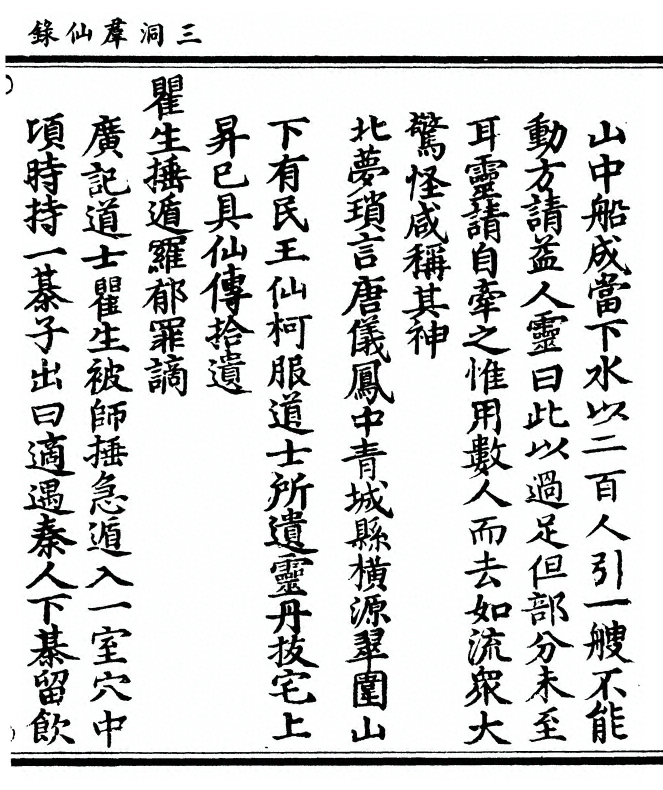 三洞羣仙錄
山中船成當下水以二百人引一艘不能
動方請益人靈曰此以過足但部分未至
耳靈請自牽之惟用數人而去如流衆大
驚怪咸稱其神
北夢瑣言唐儀鳳中青城縣橫源翠圍山
下有民王仙柯服道士所遺靈丹拔宅上
昇已具仙傳拾遺
瞿生捶遁羅郁罪謫
廣記道士瞿生被師捶急遁入一室穴中
頃時持一棊子出曰適遇秦人下棊留飲